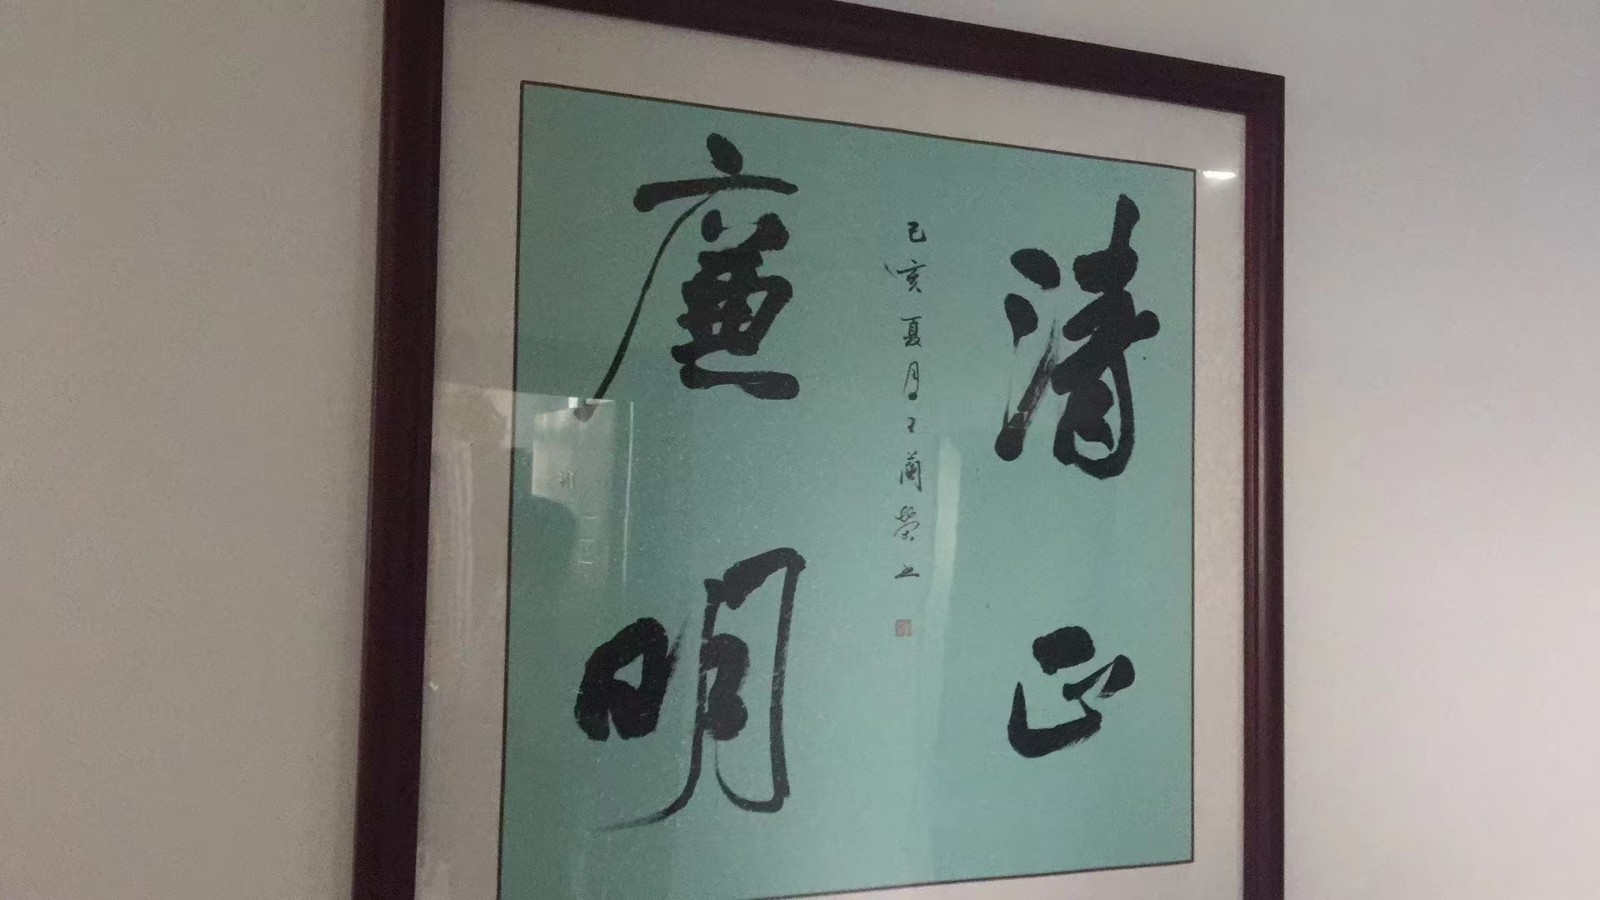 清正
己亥夏月王蘭榮書
廉明